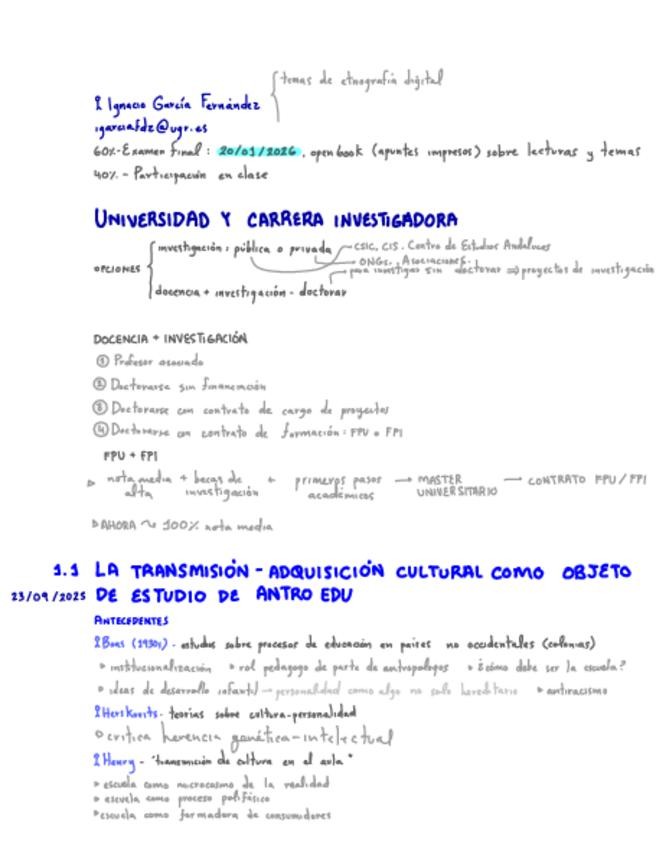 temas de etnografía digital
Ignacio García Fernández
igarciafdz@ugr.es
60%-Examen final: 20/01/2026, open book (apuntes impresos) sobre lecturas y temas
40% - Participación en clase
UNIVERSIDAD Y CARRERA INVESTIGADORA
investigación: pública o privada
CSIC, CIS, Centro de Estudios Andaluces
ONGs, Asociaciones.
OPCIONES
para investigar sin doctorar ⇒ proyectos de investigación
docencia + investigación - doctorar
DOCENCIA + INVESTIGACIÓN
① Profesor asociado
② Doctorarse sin financiación
③ Doctorarse con contrato de cargo de proyectos
④ Doctorarse con contrato de formación: FPU o FPI
FPU + FPI
nota media + becas de + primeros pasos → MASTER → CONTRATO FPU/FPI
alta investigación académicos UNIVERSITARIO
AHORA ~ 100% nota media
1.1 LA TRANSMISIÓN - ADQUISICIÓN CULTURAL COMO OBJETO
23/09/2025 DE ESTUDIO DE ANTRO EDU
ANTECEDENTES
Boas (1930s) - estudios sobre procesos de educación en países no occidentales (colonias)
institucionalización rol pedagogo de parte de antropólogos ¿cómo debe ser la escuela?
ideas de desarrollo infantil → personalidad como algo no solo hereditario antiracismo
Herskovits - teorías sobre cultura-personalidad
crítica herencia genética-intelectual
Henry - "transmisión de cultura en el aula"
escuela como microcosmo de la realidad
escuela como proceso polifásico
escuela como formadora de consumidores